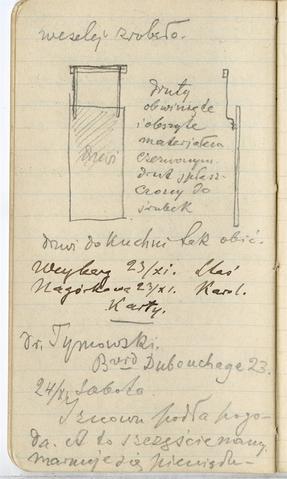 weselej zrobiło.
druty
obwinięte
i obszyte
materjałem
czerwonym.
drut spłasz-
czony do
śrubek
drzwi
drzwi do kuchni tak obić.
Weyberg 23/XI. Staś
Nagórkowa 23/XI. Karol.
Karty.
Dr. Tymowski.
Bvard Dubouchage 23.
24/XI Sobota.
Znowu podła pogo-
da. A to szczęście mamy,
marnuje się pieniądz-